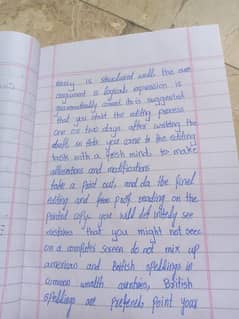 essay is structured well the are
argument & logical expression is
grammatically correct its is suggested
that you start the editing process
one or two days after writing the
draft so that you come to the editing
task with a fresh mind to make
alterations and modifications
take a print out, and do the final
editing and proof reading on the
printed copy you will definitely see
mistakes that you might not see
on a computer screen do not mix up
american and British spellings in
common wealth countries, British
spellings are prefered point your